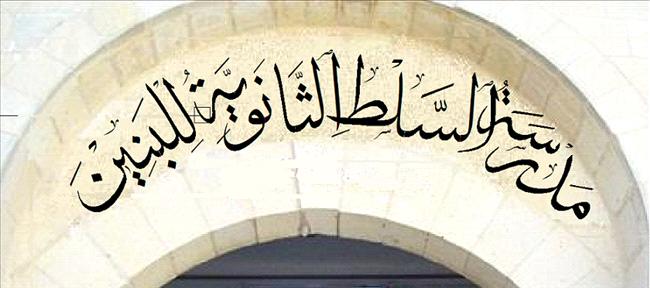 مَدْرَسَةُ السَّلْطِ الثَّانَوِيَّةِ لِلْبَنِيْنَ